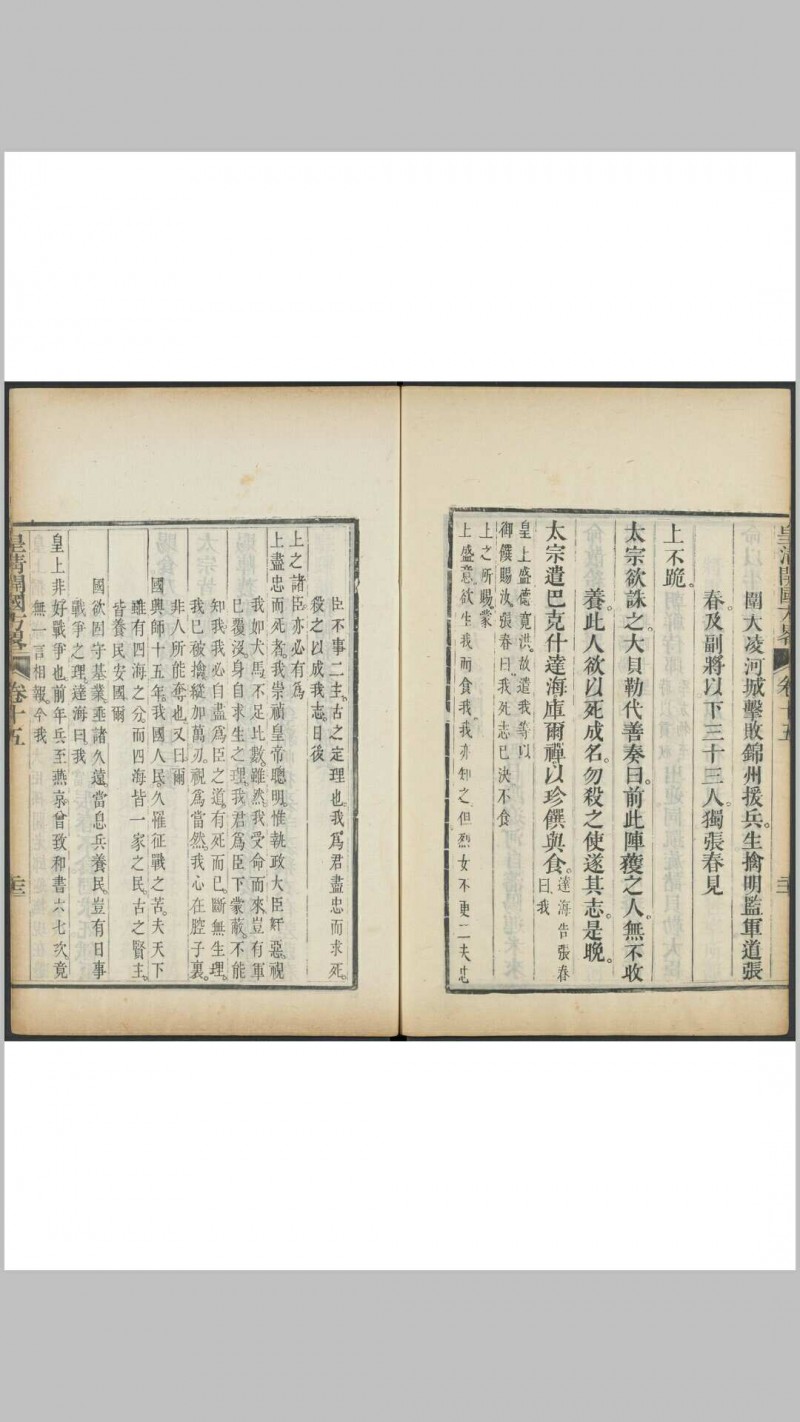 皇清開國方畧 卷十五
圍大凌河城擊敗錦州援兵。生擒明監軍道張
春及副將以下三十三人。獨張春見
上不跪。
太宗欲誅之。大貝勒代善奏曰。前此陣獲之人。無不收
養。此人欲以死成名。勿殺之使遂其志。是晚。
太宗遣巴克什達海庫爾禪。以珍饌與食。達海告張春曰我
皇上盛德寬洪。故遣我等以
御饌賜汝。張春曰。我死志已決不食
上之所賜。蒙
上盛意。欲生我而食我。我亦知之。但烈女不更二夫忠
臣不事二主。古之定理也。我爲君盡忠而求死。
殺之以成我志。日後
上之諸臣。亦必有爲
上盡忠而死者。我崇禎皇帝聰明。惟執政大臣奸惡。視
我如犬馬不足比數。雖然。我受命而來。豈有軍
已覆沒。身自求生之理。我君爲臣下蒙蔽。不能
知我。我必自盡爲臣之道。有死而已。斷無生理。
我已被擒。縱加萬刃。視爲當然。我心在腔子裏。
非人所能奪也。又曰。爾
國興師十五年。我國人民。久罹征戰之苦。夫天下
雖有四海之分。而四海皆一家之民。古之賢主。
皆養民安國。爾
國欲固守基業。垂諸久遠。當息兵養民。豈有日事
戰爭之理。達海曰。我
皇上非好戰爭也。前年兵至燕京。曾致和書六七次。竟
無一言相報。今我
皇清開國方畧 卷十五